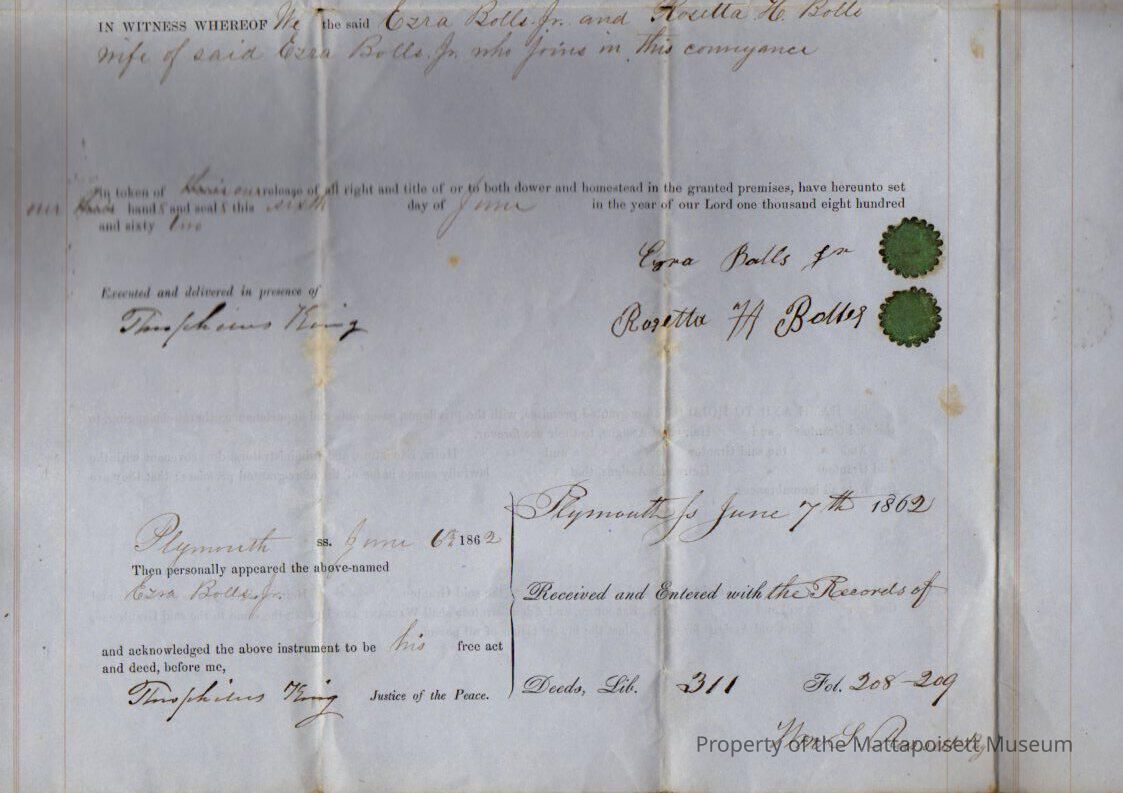 IN WITNESS WHEREOF We the said Ezra Bolls Jr. and Rosetta H. Bolls
wife of said Ezra Bolls Jr. who joins in this conveyance
in token of our release of all right and title of or to both dower and homestead in the granted premises, have hereunto set
our hands and seals this sixth day of June in the year of our Lord one thousand eight hundred
and sixty two
Ezra Bolls Jr
Executed and delivered in presence of
Theophilus King
Rosetta H Bolles
Plymouth ss June 7th 1862
Plymouth ss. June 6th 1862
Then personally appeared the above-named
Ezra Bolls Jr.
Received and Entered with the Records of
and acknowledged the above instrument to be his free act
and deed, before me,
Theophilus King Justice of the Peace.
Deeds, Lib. 311 Fol. 208-209
Wm S.
Property of the Mattapoisett Museum